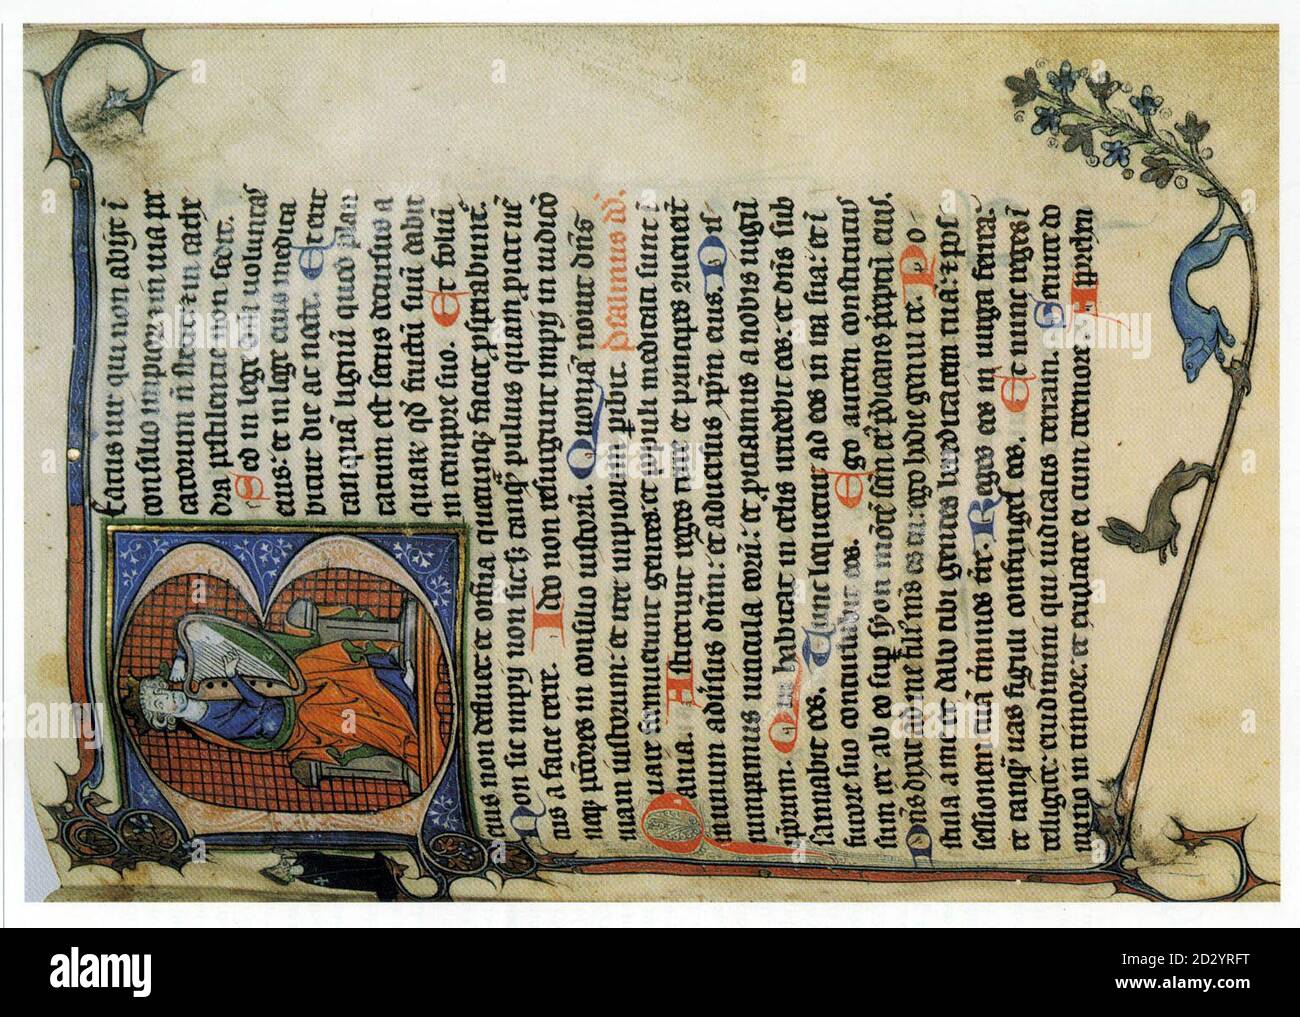 Eatus uir qui non abijt ī
consilio impiorꝫ in uia pc
catorum n̄ stetit: ⁊ in cathe
dra pestilentie non sedit.
Sed in lege dn̄i uoluntas
eius: et in lege eius medita
bitur die ac nocte. Et erit
tanquā lignū quod plan
tatum est secus decursus a
quarꝫ qđ fructū suū dabit
in tempore suo. Et foliū
eius non defluet et om̄ia quecunqꝫ faciet ꝓsperabunt᷑.
Non sic impij non sic: sꝫ tanqꝫ puluis quem ꝓicit uē
tus a facie terre. Ideo non resurgunt impij in iudicio
neqꝫ p̄tores in consilio iustorū. Quoniā nouit dn̄s
uiam iustorum: et iter impiorum ꝑibit. psalmus dd̄.
Quare fremuerunt gentes: et pp̄li meditati sunt ī
nania. Asteterunt reges terre et principes ꝯuener̄t
in unum adūsus dn̄m: et aduersus xp̄m eius. Dis
rumpamus uincula eorū: et ꝓiciamus a nobis iugū
ip̄orum. Qui habitat in celis irridebit eos: et dn̄s sub
sannabit eos. Tunc loquetur ad eos in ira sua: et ī
furore suo conturbabit eos. Ego autem constitutus
sum rex ab eo suꝑ syon mōtē sc̄m ei᷒ p̄dicans p̄ceptū eius.
Dn̄s dixit ad me filius m̄s es tu: ego hodie genui te. Po
stula a me et dabo tibi gentes hereditatem tuā: ⁊ pos
sessionem tuā t̄minos tr̄e. Reges eos in uirga ferrea:
et tanqꝫ uas figuli confringes eos. Et nunc reges ī
telligite: erudimini qui iudicatis terram. Seruite do
mino in timore: et exultate ei cum tremore. Apprehen
a
alamy
alamy
Image ID: 2D2YRFT
www.alamy.com